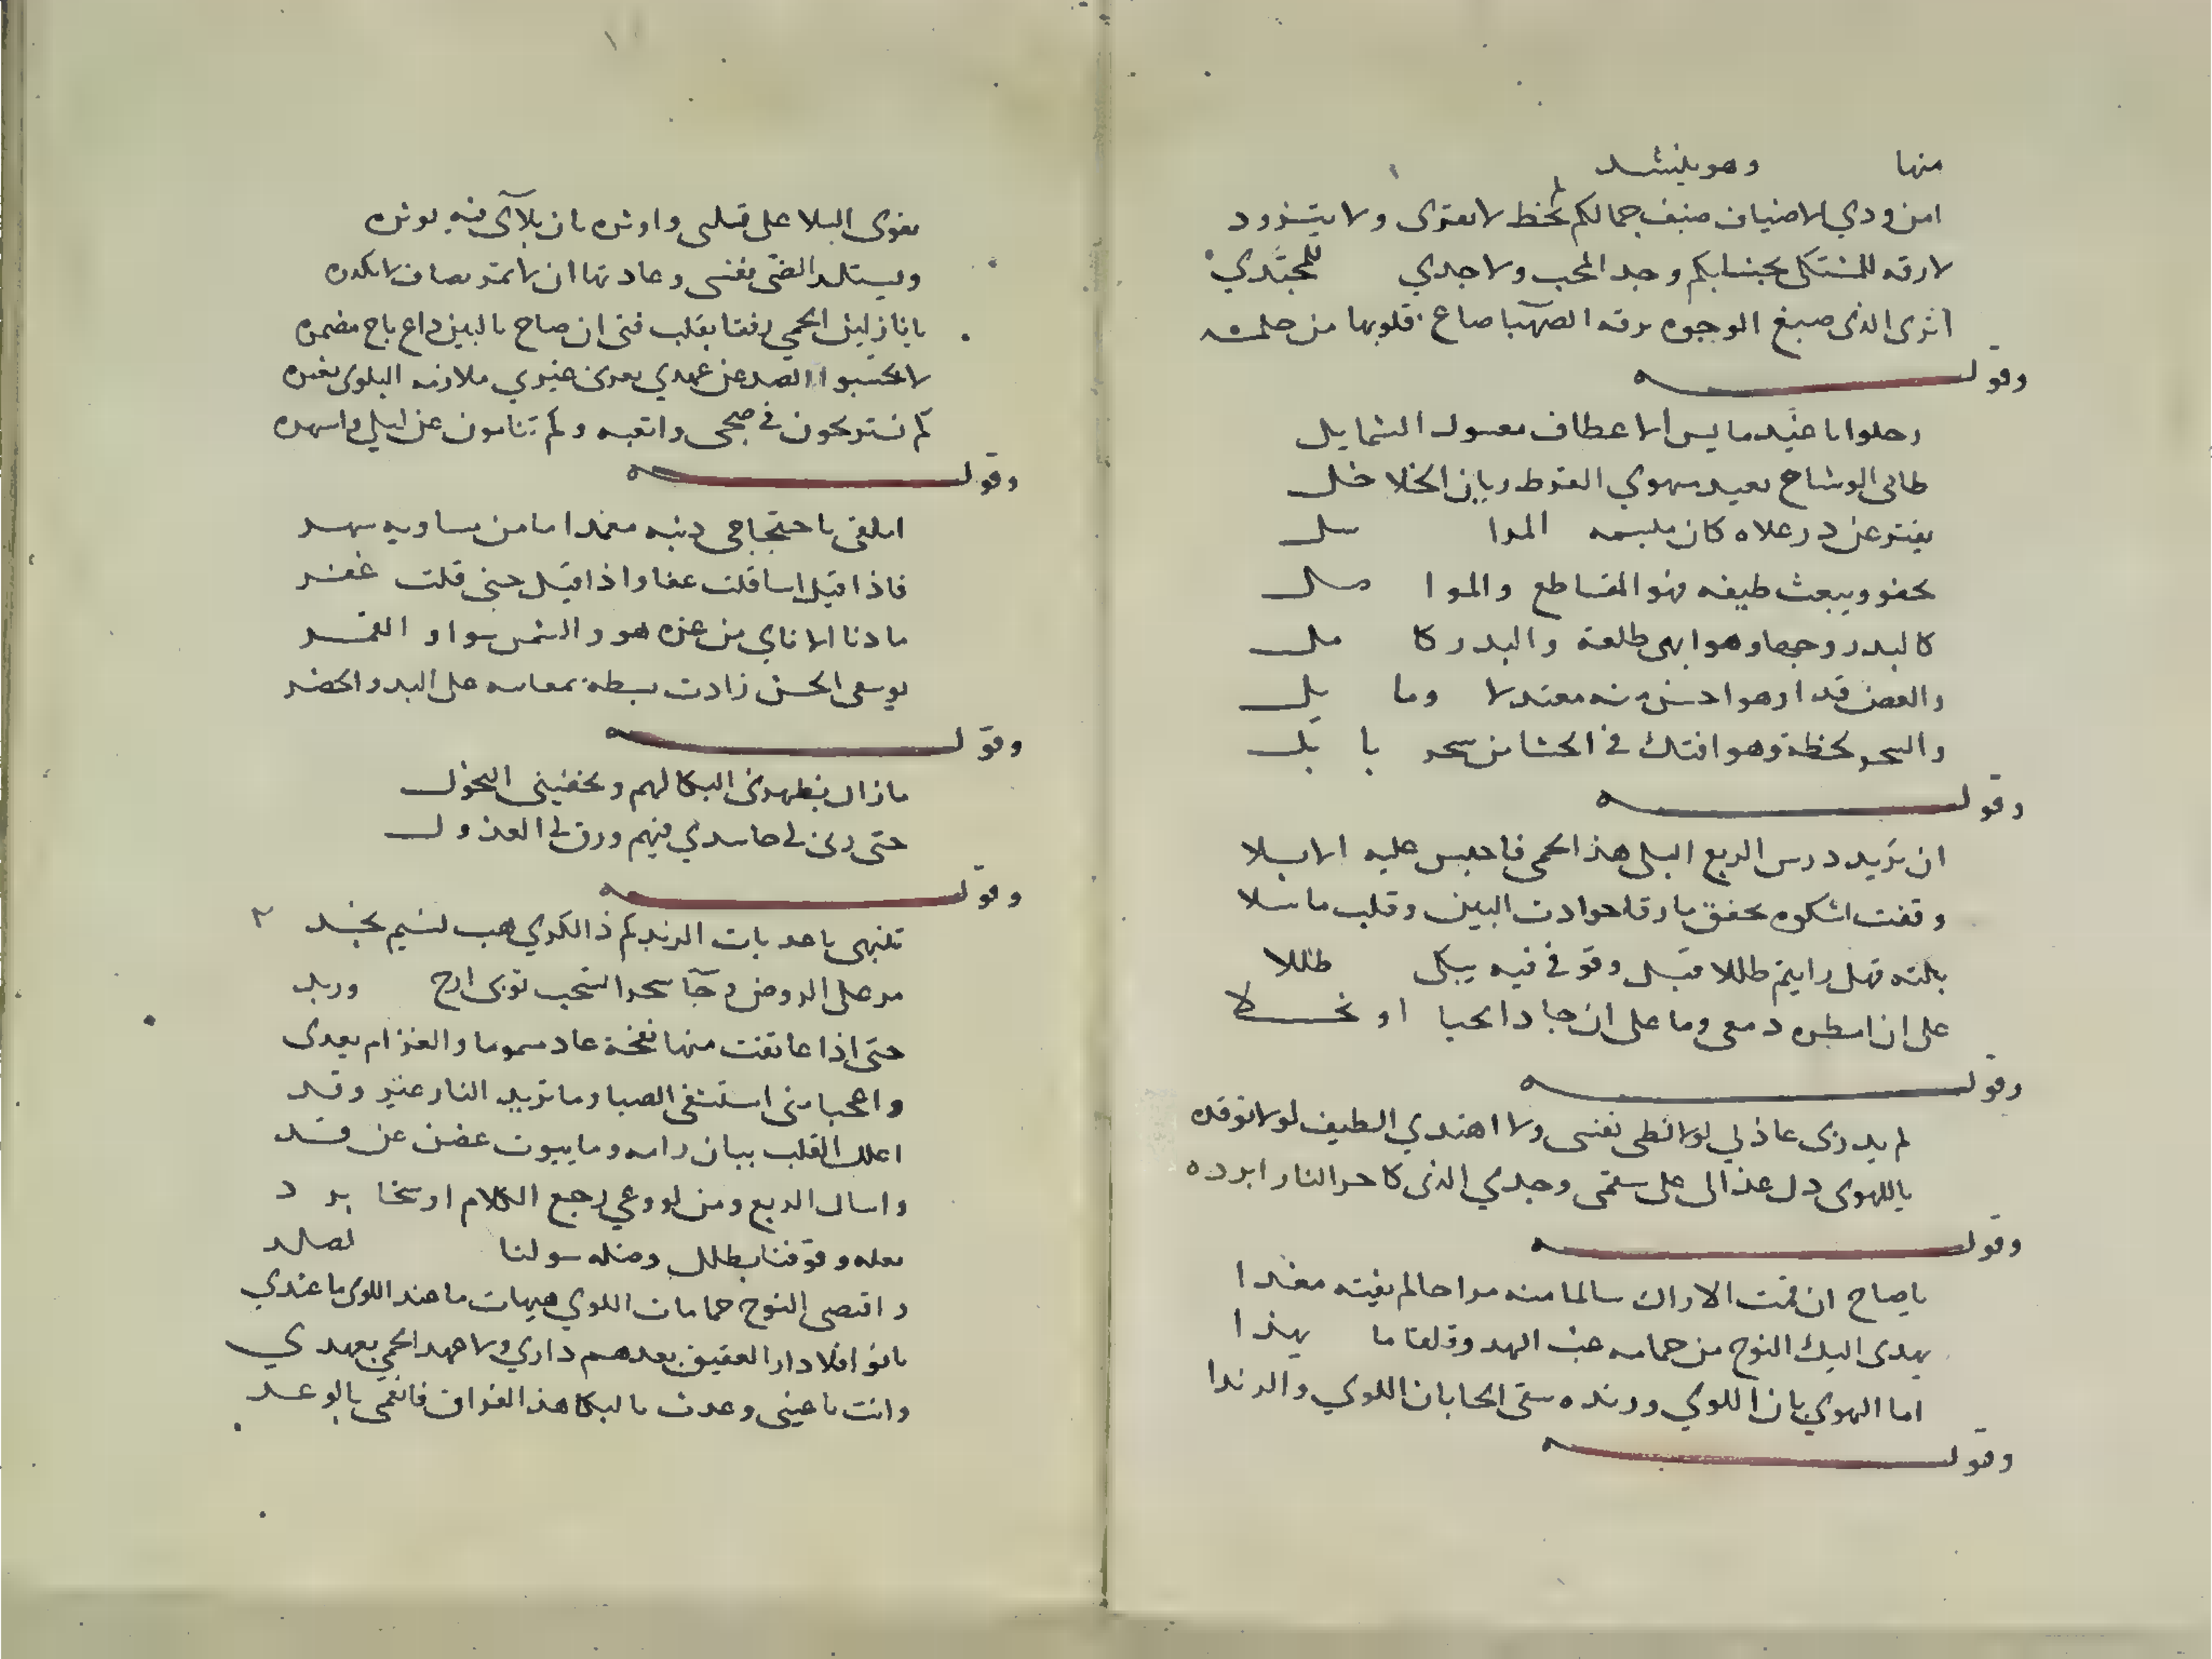 منها وهو ينشد
امن ودي لاضياف ضيف جمالكم لحظ لا يقرى ولا يتزود
لا رقه للمشتكى بجنابكم وجد المحب ولا جدي للمجتدي
اترى الذى صبغ الوجوه برقه الصهبا صاغ قلوبها من جلمد
وقوله
رحلوا باغيد مايس الاعطاف معسول الشمايل
ظامى الوشاح بعيد مهوي القرط ريان الخلاخل
يفتر عن در علاه كان مبسمه المنا سل
يجفو ويبعث طيفه فهو المقاطع والموا صل
كالبدر وجها وهو ابهى طلعة والبدر كا مل
والغصن قدا وهو احسن منه معتدلا وما يل
والسحر لحظة وهو افتك في الحشا من سحر با بل
وقوله
ان تريد درس الربع البلى هذا الحمى فاحبس عليه الابلا
وقفت اشكوه بخفق ما رقا حوادث البين وقلب ما سلا
بلته فهل رايتم طللا قبل وقوفي فيه يبكى طللا
على ان امطره دمعى وما على ان جاد الحيا او بخلا
وقوله
لم يدر بى عاذلي لولا تلظى نفسى ولا اهتدي الطيف لولا توقده
يا للهوى دل عذالى على سقمى وجدي الذى كا حر النار ابرده
وقوله
يا صاح ان فت الاراك سالما منه مراحا لم يفته مغدا
يهدى اليك النوح من حمامه عبث الهد وقلقا ما يهدا
اما الهوي بان اللوي ورنده سقى الحا بان اللوي والرندا
وقوله
يقوى البلا على قتلى واوثره بان بلآى فيه يوثره
ويستلذ الضنى نفسى وعادتها ان لا تمر بصاف لا تكدره
يا نازلين الحمي رفقا بقلب فتى ان صاح بالبين داع باح مضمره
لا تحسبوا الصد عن عهدي يغيرنى غيري ملازمه البلوى تغيره
كم تستريحون في صبحى واتعبه وكم تنامون عن ليلي واسهره
وقوله
املقى باحتجاجى ذنبه مغمدا ما من مساويه سهد
فاذا قيل اسا قلت عفا واذا قيل جنى قلت غفر
ما دنا الا ناي من عزه هو والشمس سوا والقمر
يوسفى الحسن زادت بسطة بمعانيه على البدو والحضر
وقوله
ما زال يظهرنى البكا لهم ويخفينى النحول
حتى رثى لى حاسدي فيهم ورق لى العذول
وقوله
تنبهى يا عذبات الرند كم ذا الكري هب نسيم نجد
مر على الروض وجآ سحرا يسحب ثوبى ارج ورند
حتى اذا عانقت منها نفحة عاد سموما والغرام يعدى
واعجبا منى استشفى الصبا وما تزيد النار غير وقد
اعلل القلب ببان رامه وما ينوب غصن عن قد
واسال الربع ومن لو وعي رجع الكلام او سخا برد
تعله وقوفنا بطلل وضله سولنا لصلد
واقتضى النوح حمامات اللوي هيهات ما عند اللوى ما عندي
بانوا فلا دار العقيق بعدهم داري ولا عهد الحمي بعهدي
وانت يا عينى وعدت بالبكا هذا الفراق فانعمى بالوعد